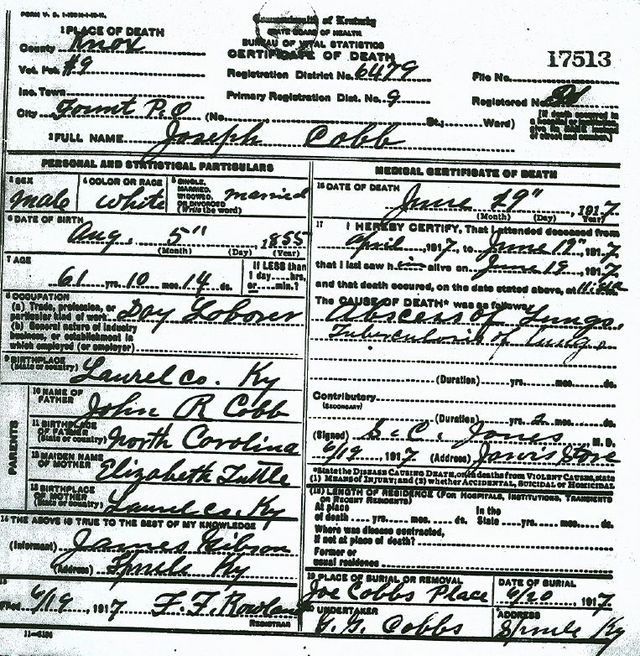 FORM V. S.
Commonwealth of Kentucky
STATE BOARD OF HEALTH
BUREAU OF VITAL STATISTICS
CERTIFICATE OF DEATH
17513
1 PLACE OF DEATH
County Knox
Vot. Pct. #9
Inc. Town
City Fount P.O (No. St.; Ward)
Registration District No. 6479
Primary Registration Dist. No. 9
File No.
Registered No.
[If death occurred in a hospital or institution, give its NAME instead of street and number.]
2 FULL NAME Joseph Cobb
PERSONAL AND STATISTICAL PARTICULARS
3 SEX male
4 COLOR OR RACE white
5 SINGLE, MARRIED, WIDOWED, OR DIVORCED (Write the word) married
6 DATE OF BIRTH Aug. 5", 1855
(Month) (Day) (Year)
7 AGE 61 yrs. 10 mos. 14 ds.
If LESS than 1 day...hrs. or...min.?
8 OCCUPATION
(a) Trade, profession, or particular kind of work. Day Laborer
(b) General nature of industry business, or establishment in which employed (or employer)
9 BIRTHPLACE (State or country) Laurel co. Ky
PARENTS
10 NAME OF FATHER John R Cobb
11 BIRTHPLACE OF FATHER (State or country) North Carolina
12 MAIDEN NAME OF MOTHER Elizabeth Tuttle
13 BIRTHPLACE OF MOTHER (State or country) Laurel cs. Ky
14 THE ABOVE IS TRUE TO THE BEST OF MY KNOWLEDGE
(Informant) James Gibson
(Address) Sprule Ky
15
Filed 6/19, 1917 F. F. Rowland
REGISTRAR
MEDICAL CERTIFICATE OF DEATH
16 DATE OF DEATH June 19", 1917
(Month) (Day) (Year)
17 I HEREBY CERTIFY, That I attended deceased from
April, 1917, to June 12", 1917
that I last saw him alive on June 19, 1917
and that death occured, on the date stated above, at
The CAUSE OF DEATH* was as follows:
Abscess of Lungs.
Tuberculosis of Lungs
(Duration) yrs. mos. ds.
Contributory
(SECONDARY)
(Duration) yrs. 2 mos. ds.
(Signed) S. C. Jones M. D.
6/19 1917 (Address) Jarvis Store
*State the DISEASE CAUSING DEATH, or, in deaths from VIOLENT CAUSES, state
(1) MEANS OF INJURY; and (2) whether ACCIDENTAL, SUICIDAL or HOMICIDAL
(18) LENGTH OF RESIDENCE (FOR HOSPITALS, INSTITUTIONS, TRANSIENTS OR RECENT RESIDENTS)
At place of death yrs. mos. ds. In the State yrs. mos. ds.
Where was disease contracted, if not at place of death?
Former or usual residence
19 PLACE OF BURIAL OR REMOVAL Joe Cobbs Place
DATE OF BURIAL 6/20, 1917
20 UNDERTAKER G. G. Cobbs
ADDRESS Sprule Ky